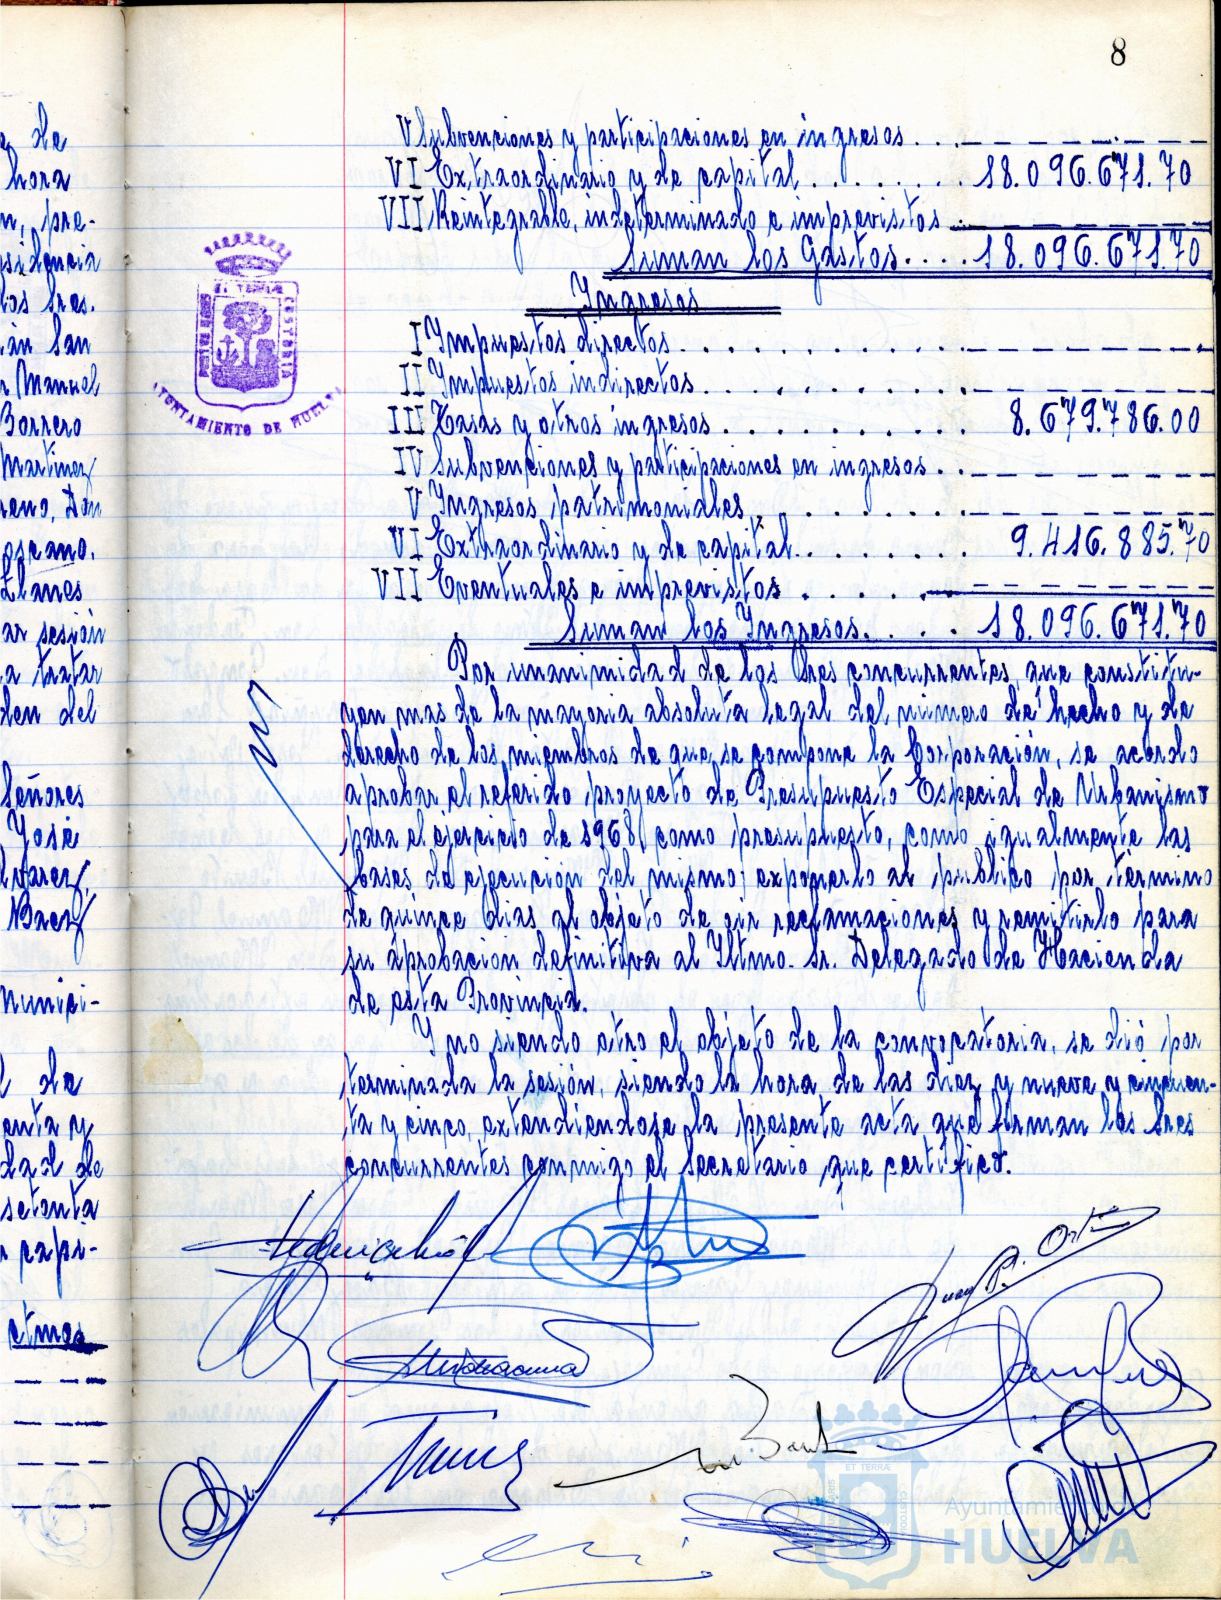 8
V Subvenciones y participaciones en ingresos . . . — — — — — —
VI Extraordinario y de capital . . . . . . . 18.096.671.70
VII Reintegrable, indeterminado e imprevistos . — — — — — —
Suman los Gastos . . . . 18.096.671.70
Ingresos
I Impuestos directos . . . . . . . . . . — — — — — —
II Impuestos indirectos . . . . . . . . . — — — — — —
III Tasas y otros ingresos . . . . . . . . . 8.679.786.00
IV Subvenciones y participaciones en ingresos . . — — — — — —
V Ingresos patrimoniales . . . . . . . . — — — — — —
VI Extraordinario y de capital . . . . . . . 9.416.885.70
VII Eventuales e imprevistos . . . . . — — — — — —
Suman los Ingresos . . . . 18.096.671.70
Por unanimidad de los Sres concurrentes, que constitu-
yen mas de la mayoria absoluta legal del número de hecho y de
derecho de los miembros de que se compone la Corporación, se acordo
aprobar el referido proyecto de Presupuesto Especial de Urbanismo
para el ejercicio de 1968 como presupuesto, como igualmente las
bases de ejecución del mismo; exponerlo al publico por término
de quince dias al objeto de oir reclamaciones y remitirlo para
su aprobación definitiva al Iltmo. Sr. Delegado de Hacienda
de esta Provincia.
Y no siendo otro el objeto de la convocatoria, se dió por
terminada la sesión, siendo la hora de las diez y nueve y cincuen-
ta y cinco, extendiendose la presente acta que firman los Sres
concurrentes conmigo el Secretario que certifico.
AYUNTAMIENTO DE HUELVA
Juan P. Ortiz
Ayuntamie
HUELVA
de
hora
n, pre-
sidencia
los Sres.
San
Manuel
Borrero
Martinez
reno, Don
oscano.
Llanes
ar sesión
a tratar
den del
Señores
José
lvarez,
Baez
munici-
de
enta y
dad de
setenta
capi-
ctmos